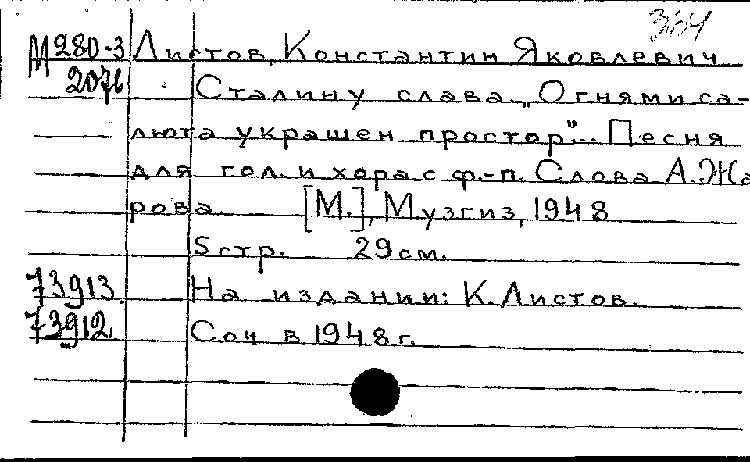 М280-3 Листов, Константин Яковлевич
2076 Сталину слава „Огнями са-
люта украшен простор"... Песня
для гол. и хора с ф.-п. Слова А.Жа
рова [М.], Музгиз, 1948
5стр. 29см.
73913 На издании: К.Листов.
73912 Соч в 1948г.